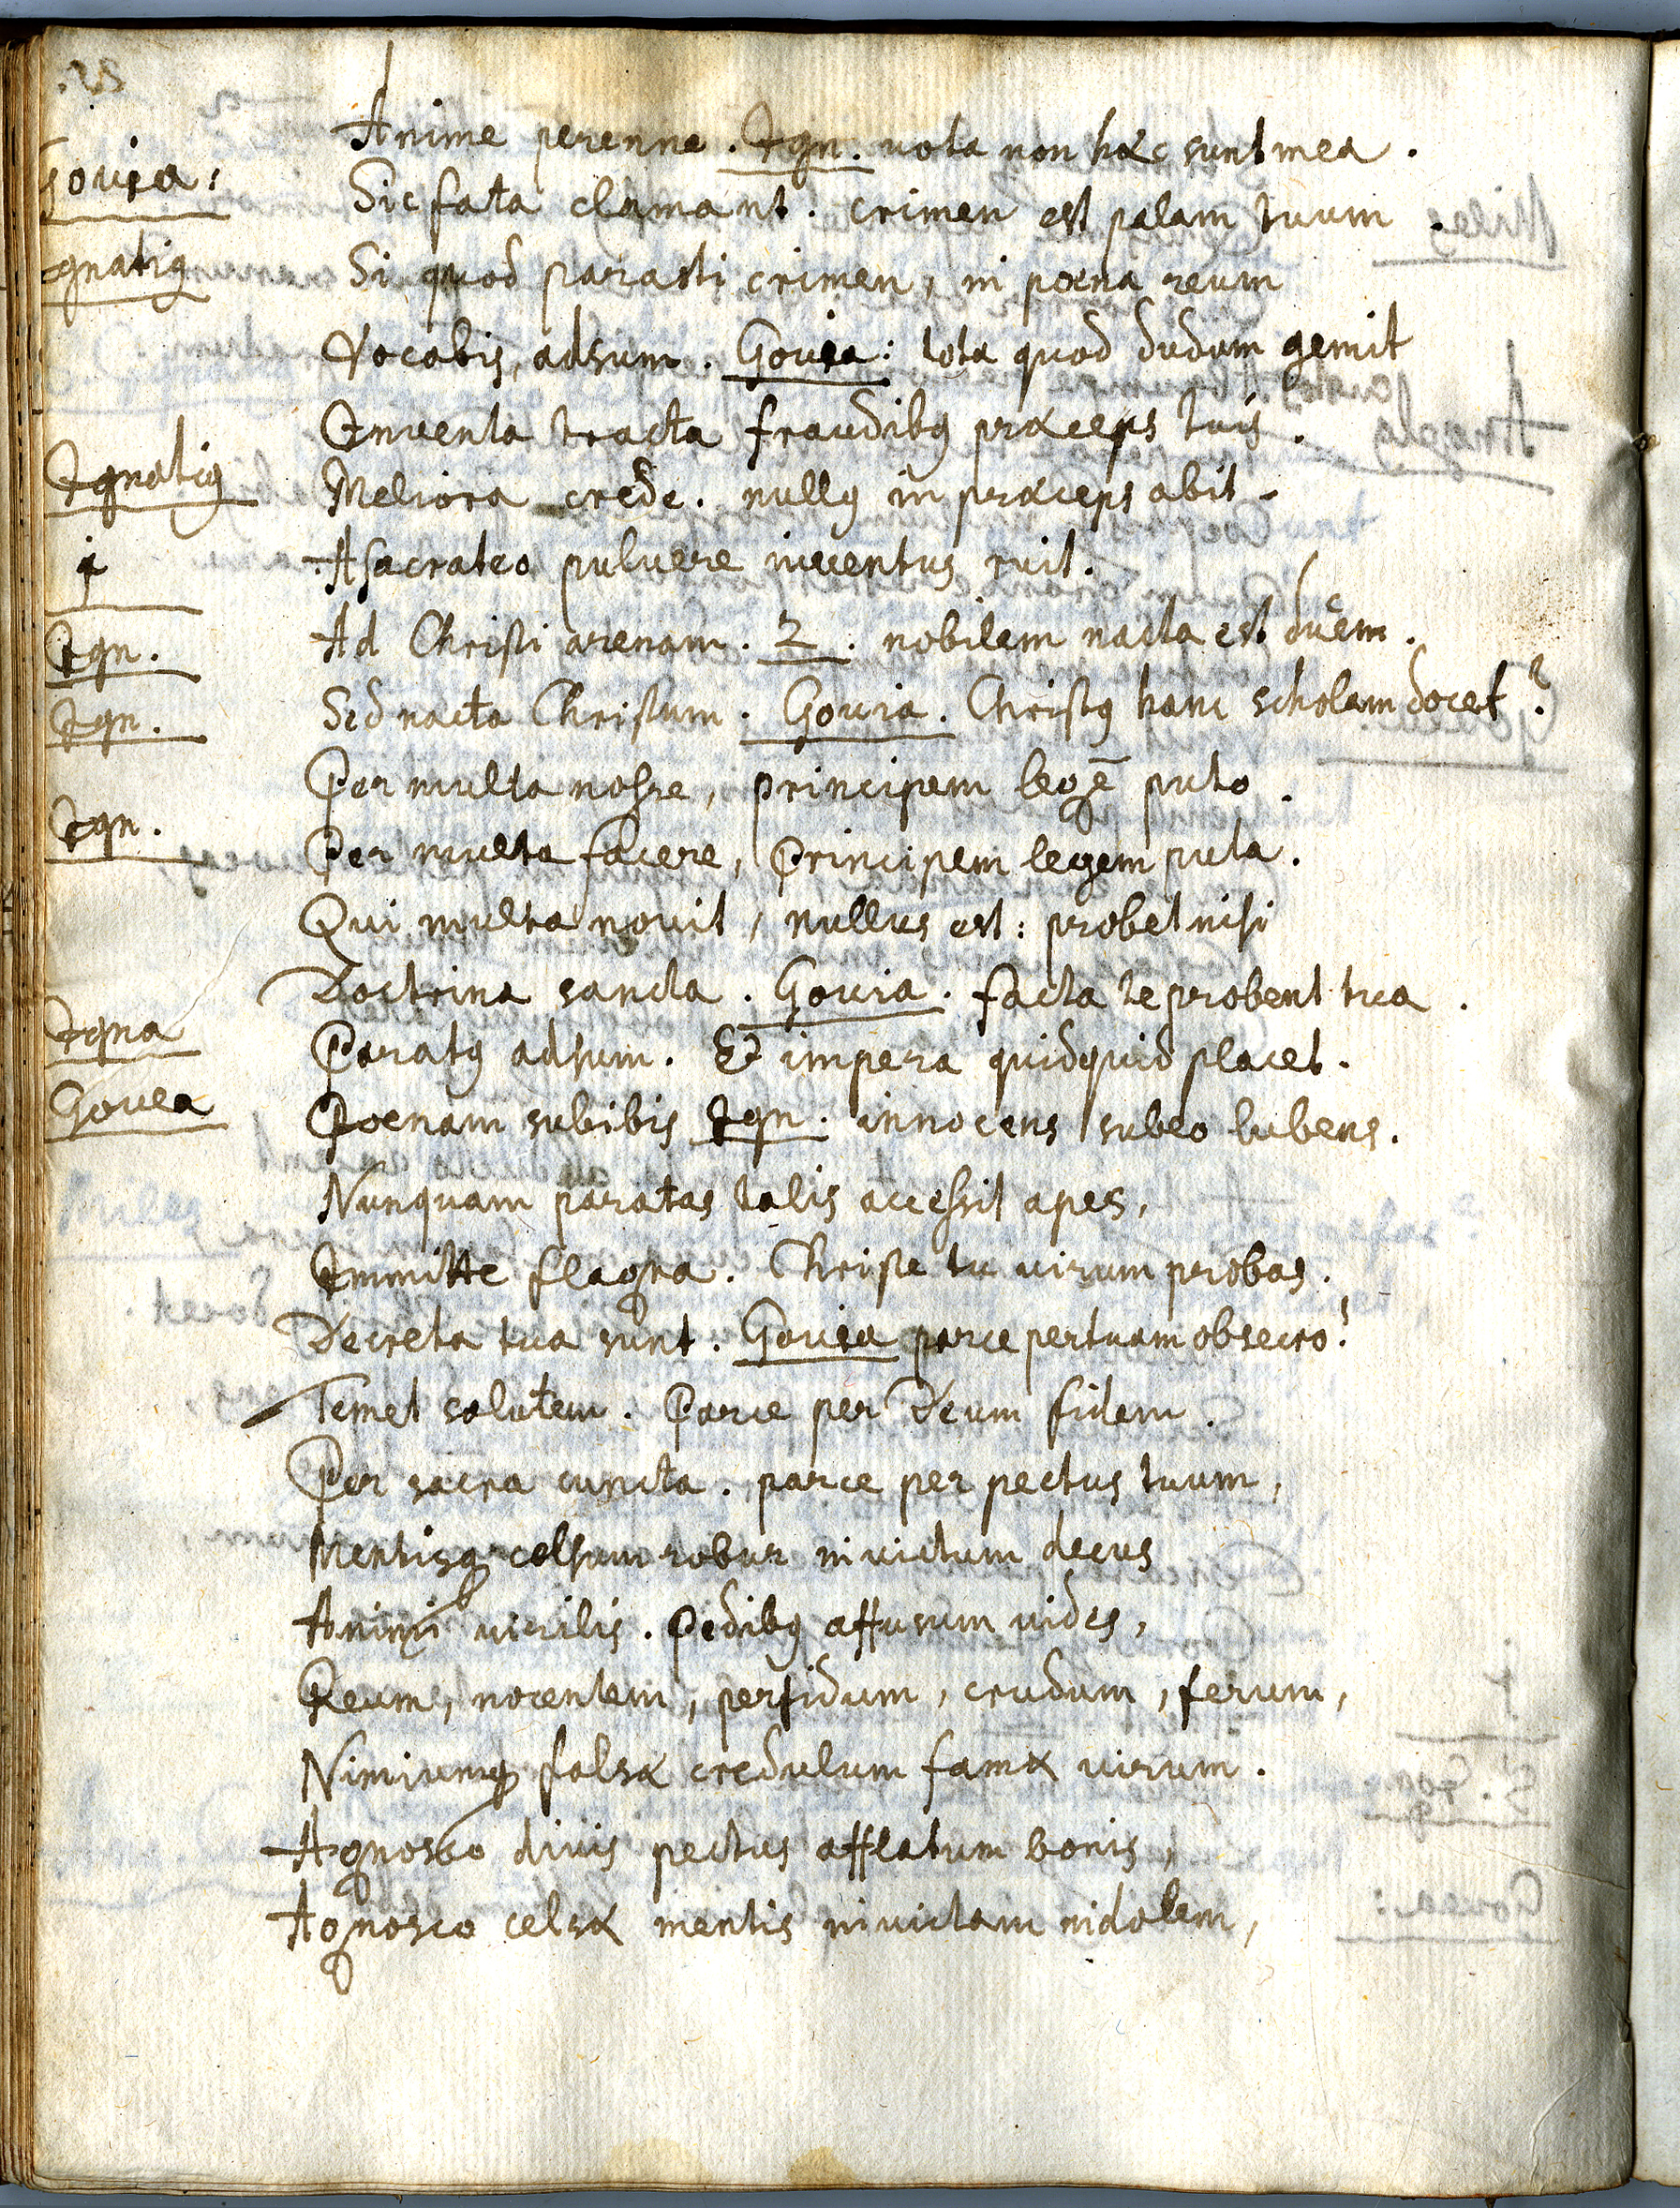 Anime perenne . Ign. vota non hæc sunt mea .
Govea: Sic fata clamant . crimen est palam tuum .
Ignatiꝰ Si quod parasti crimen, in poena reum
Vocabis, adsum . Govea: tota quod dudum gemit
Inventa tracta fraudibꝰ præceps tuis .
Ignatiꝰ Meliora crede . nullꝰ in præceps abit .
1 A sacrateo pulvere iuventus ruit .
Ign. Ad Christi arenam . 2 . nobilem nacta est ducem .
Ign. Sed nacta Christum . Govea . Christꝰ hanc scholam docet ?
Per multa nosse, principem legē puto .
Ign. Per multa facere, Principem legem puta .
Qui multa novit, nullus est : probet nisi
Doctrina sancta . Govea . facta te probent tua .
Igna Paratꝰ adsum . Et impera quidquid placet .
Govea Poenam subibis Ign. innocens subeo lubens .
Nunquam paratas talis accessit apes,
Immitte flagra . Christe tu virum probas .
Decreta tua sunt . Govea parce per tuam obsecro !
Temet salutem . Parce per Deum fidem .
Per sacra cuncta . parce per pectus tuum,
Mentisqꝫ celsum robur invictum decus
Animi virilis . Pedibꝰ affusum vides,
Reum, nocentem, perfidum, crudum, ferum,
Nimiumqꝫ falsæ credulum famæ virum .
Agnosco divis pectus afflatum bonis,
Agnosco celsæ mentis invictam indolem,